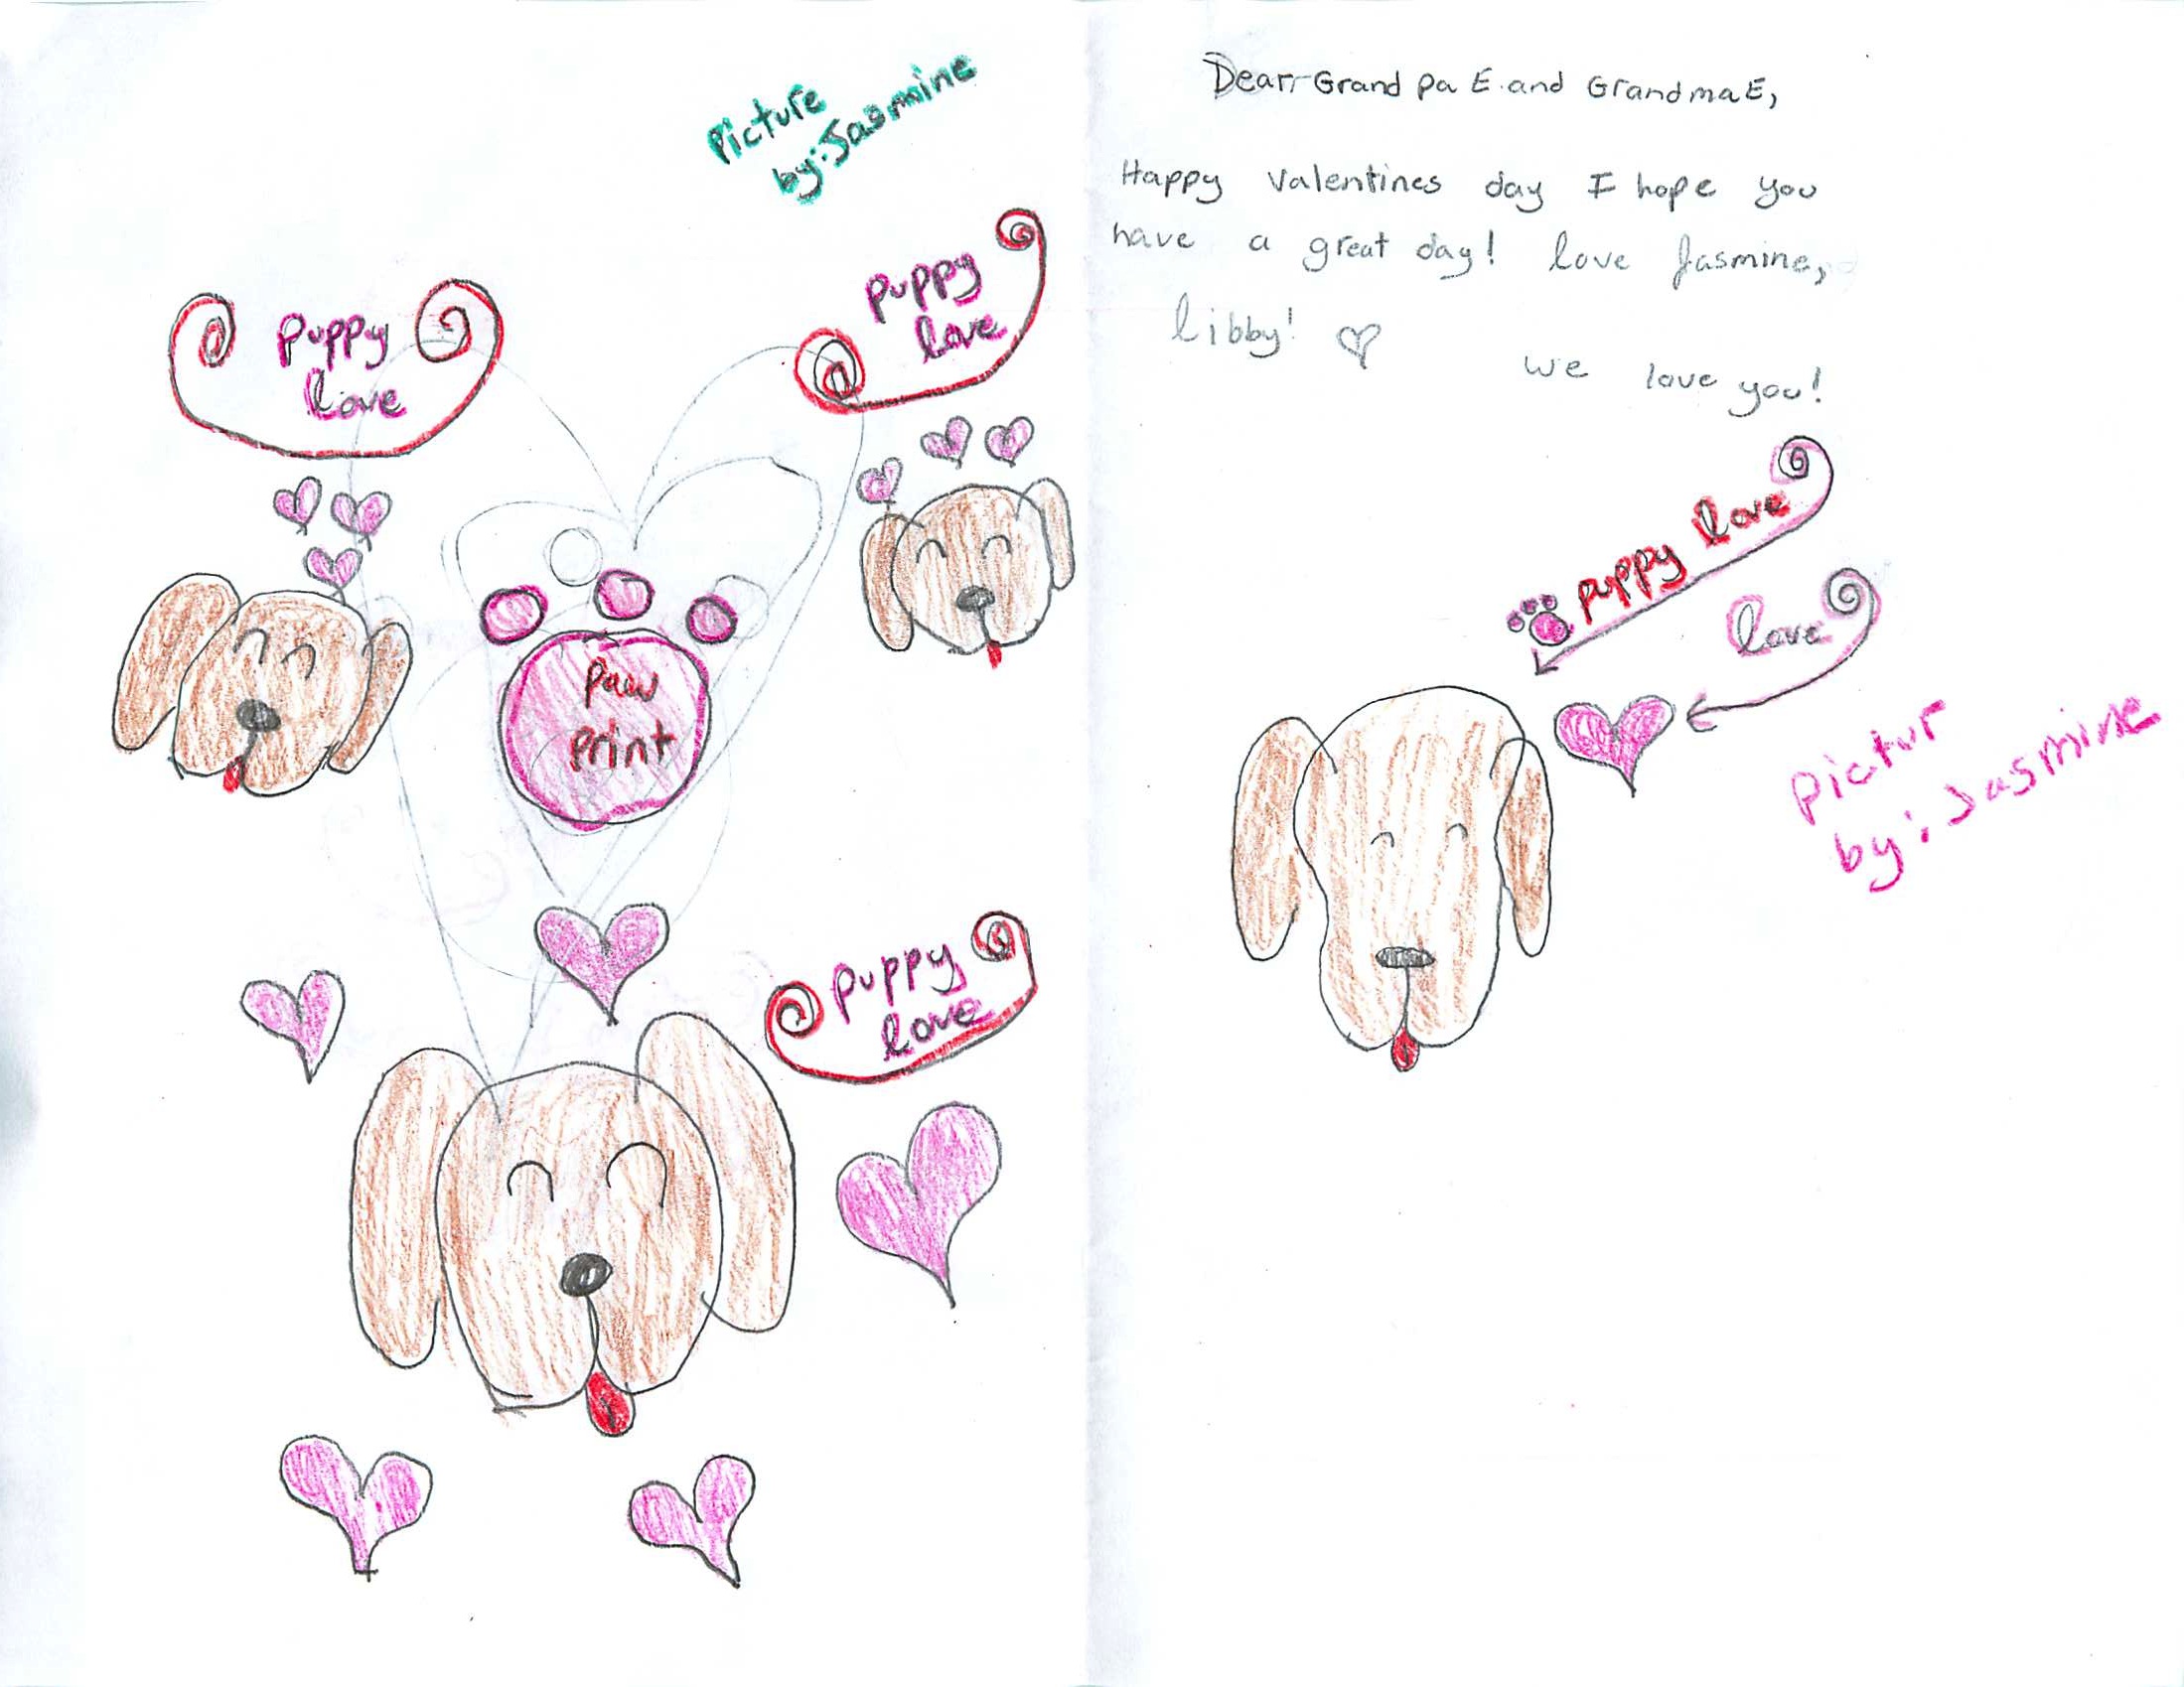 Picture
by: Jasmine
puppy
love
puppy
love
paw
print
puppy
love
Dear, Grand pa E. and Grandma E,
Happy Valentines day I hope you
have a great day! love Jasmine,
libby!
we love you!
puppy love
love
pictur
by: Jasmine